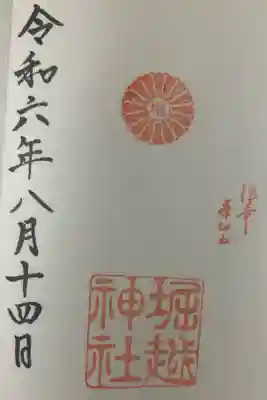 堀越
神社
令和六年八月十四日